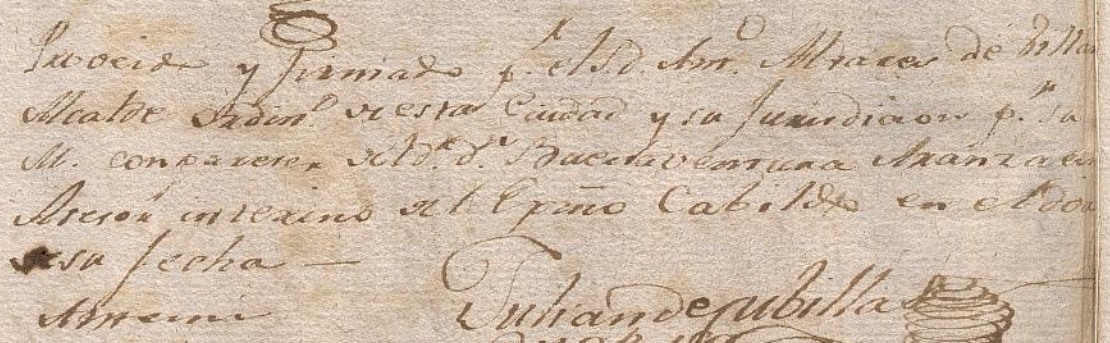 Proveido y firmado p.r el S.D. Ant.o Alvarez de Villar
Alcalde Ordin.o de esta Ciudad y su Jurisdicion p.r su
M. con parecer del D.r d.n Buenaventura Aranzaen
Asesor interino del Epmo Cabildo en el dia
de su fecha —
Antemi
Julian de Cubillas